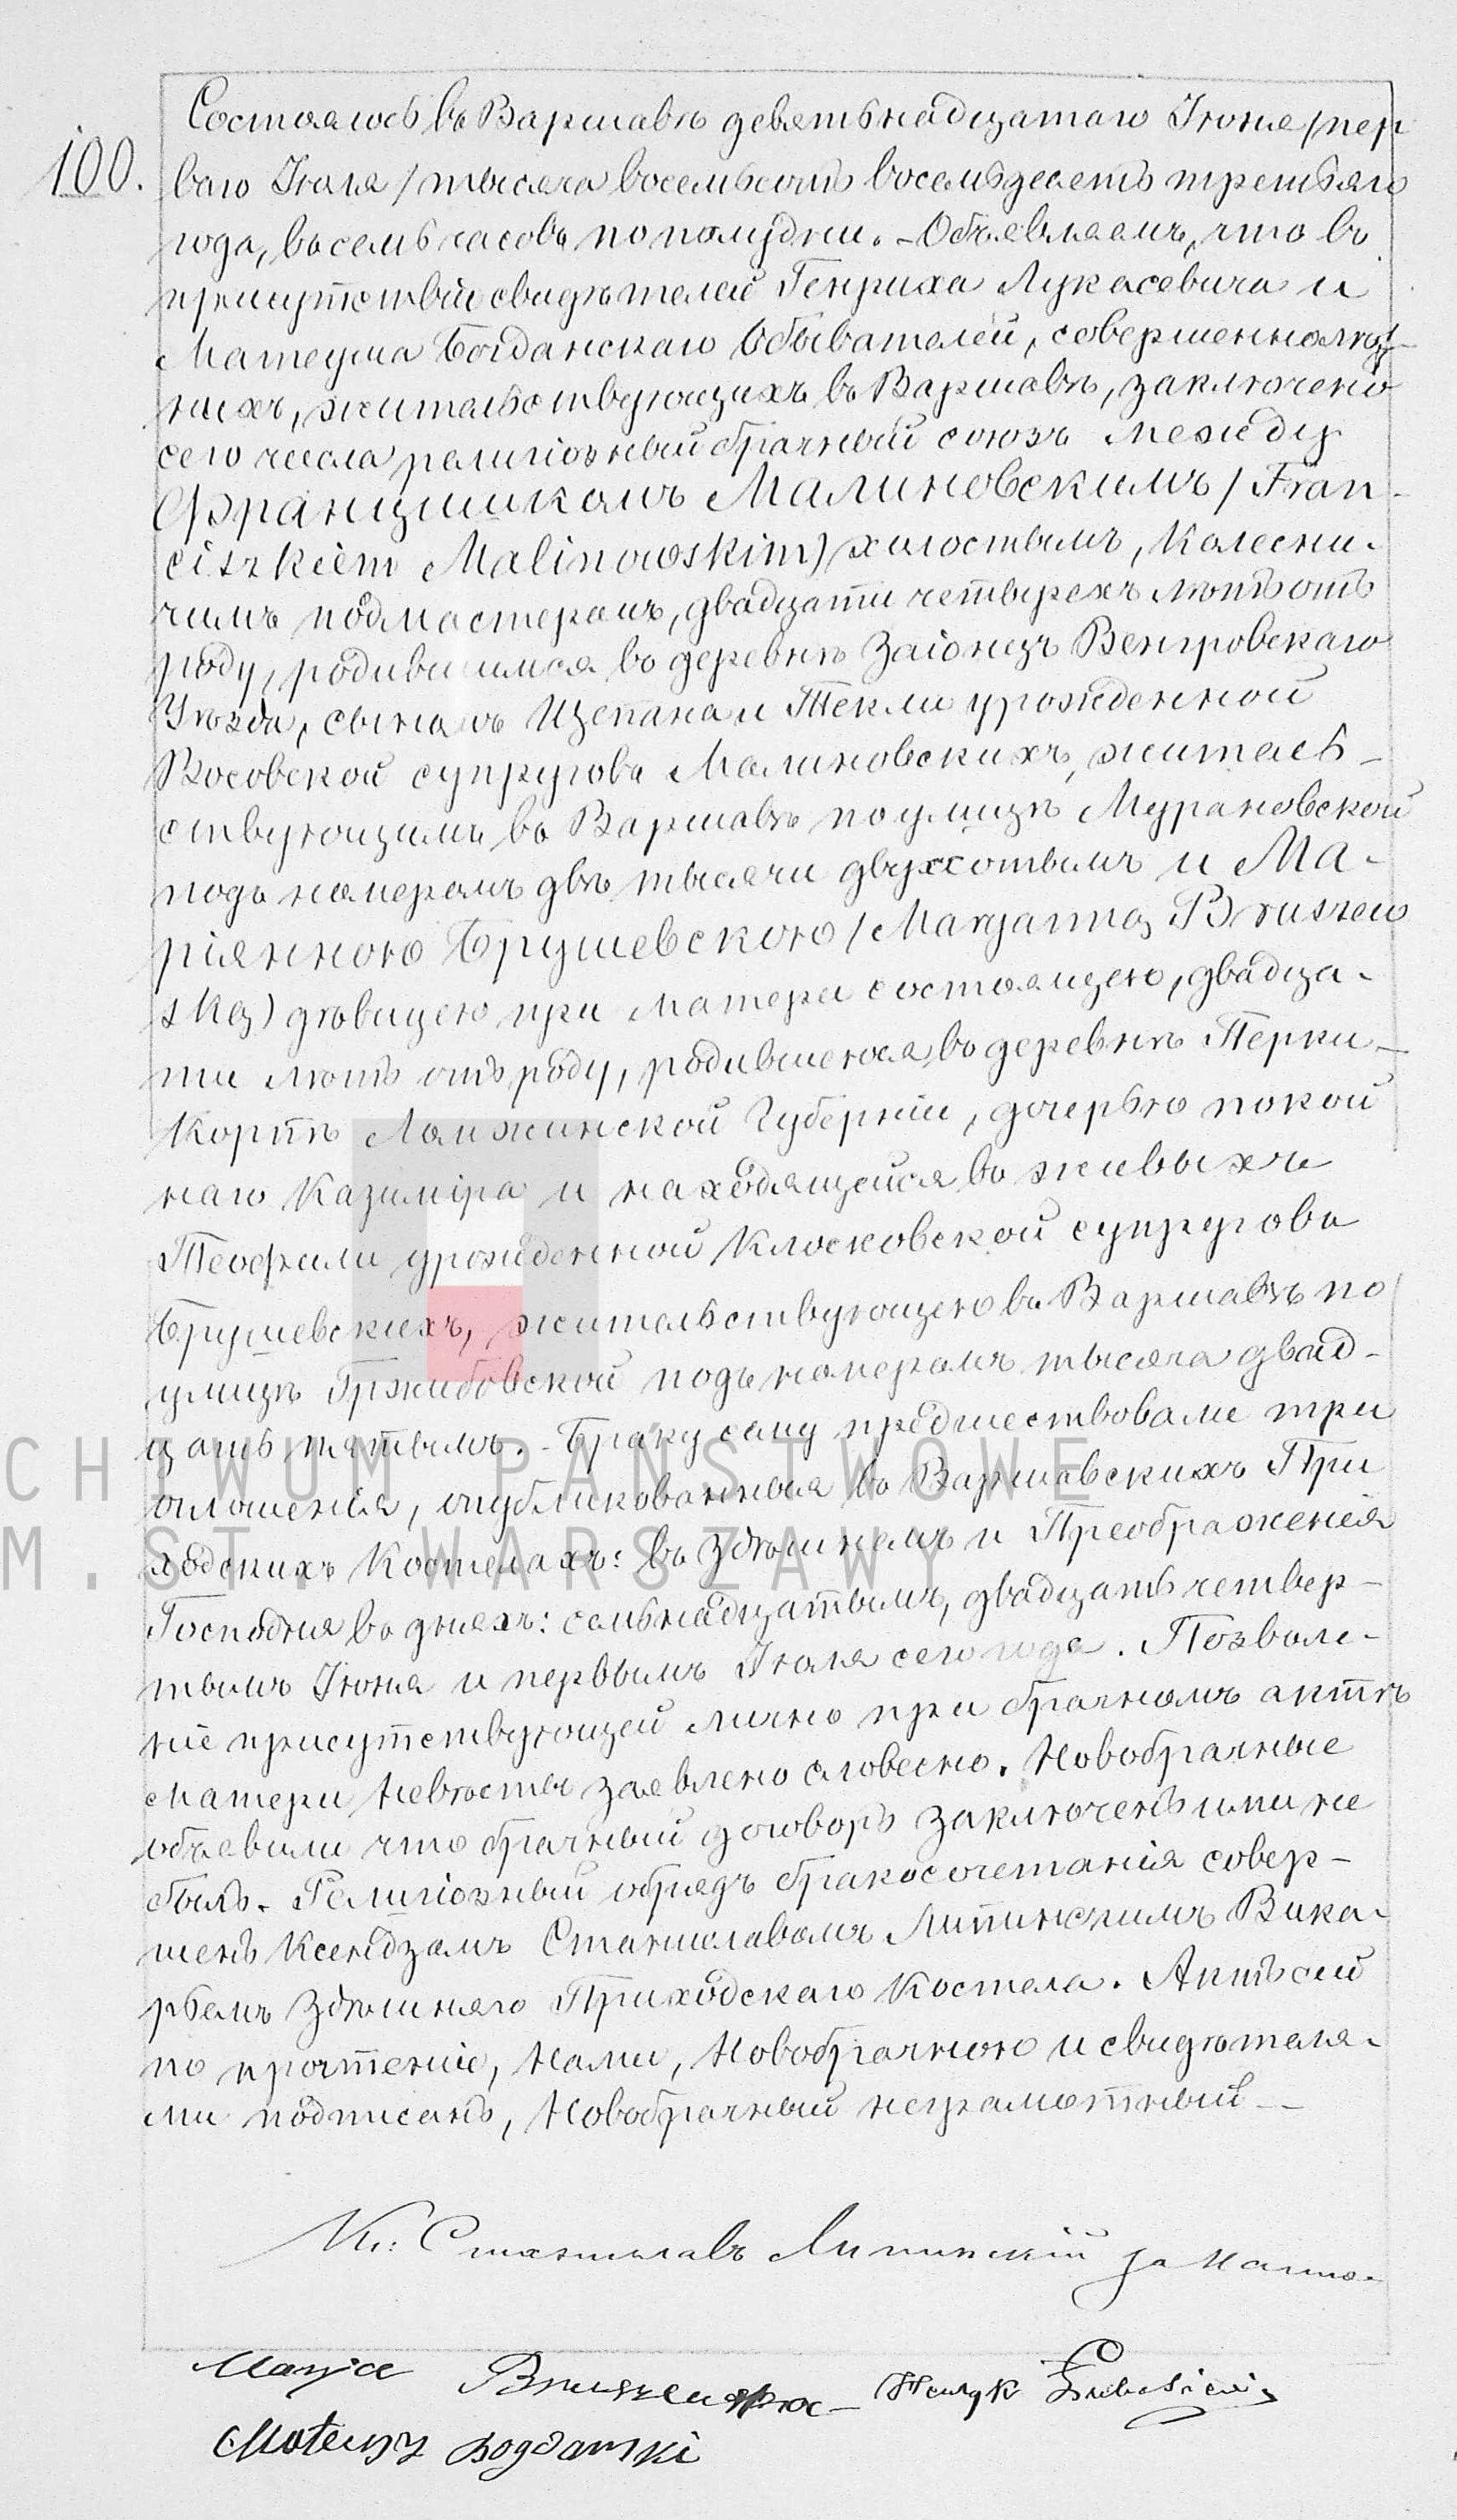 100.
Состоялось въ Варшавѣ девятьнадцатаго Іюня /пер
ваго Іюля/ тысяча восемьсотъ восемьдесятъ третьяго
года, въ семь часовъ по полудни. – Объявляемъ, что въ
присутствіи свидѣтелей Генриха Лукасевича и
Матеуша Богданскаго Обывателей, совершеннолѣт-
нихъ, жительствующихъ въ Варшавѣ, заключенъ
сего числа религіозный брачный союзъ между
Францишкомъ Малиновскимъ / Fran-
ciszkiem Malinowskim) холостымъ, колесни-
чимъ подмастеромъ, двадцати четырехъ лѣтъ отъ
роду, родившимся въ деревнѣ Заіонцъ Венгровскаго
Уѣзда, сыномъ Щепана и Текли урожденной
Восовской супруговъ Малиновскихъ, житель-
ствующимъ въ Варшавѣ по улицѣ Мурановской
подъ номеромъ двѣ тысячи двухсотымъ и Ма-
ріянною Брушевскою / Maryanną Bruszew
ską) дѣвицею при матери состоящею, двадца-
ти лѣтъ отъ роду, родившеюся въ деревнѣ Перки-
Кортѣ Ломжинской Губерніи, дочерью покой
наго Казиміра и находящейся въ живыхъ
Теофили урожденной Клосковской супруговъ
Брушевскихъ, жительствующею въ Варшавѣ по
улицѣ Гржибовской подъ номеромъ тысяча двад-
цать пятымъ. – Браку сему предшествовали три
оглошенія, опубликованныя въ Варшавскихъ При
ходскихъ Костелахъ: въ здѣшнемъ и Преображенія
Господня въ дняхъ: семьнадцатымъ, двадцать четвер-
тымъ Іюня и первымъ Іюля сего года. Позволе-
ніе присутствующей лично при брачномъ актѣ
матери Невѣсты заявлено словесно. Новобрачные
объявили что брачный договоръ заключенъ ими не
былъ. Религіозный обрядъ бракосочетанія совер-
шенъ Ксендзомъ Станиславомъ Липинскимъ Вика-
ріемъ здѣшняго Приходскаго Костела. Актъ сей
по прочтеніе, Нами, Новобрачною и свидѣтеля-
ми подписанъ, Новобрачный неграмотный –
Кс: Станиславъ Липинскій за Насто.
Marja Bruszewska – Henryk Łukasiewicz
Mateusz Bogdanski
CHIWUM PAŃSTWOWE
M. ST. WARSZAWY